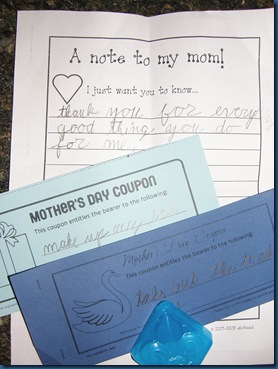 A note to my mom!
I just want you to know...
thank you for every
good thing you do
for me
MOTHER'S DAY COUPON
This coupon entitles the bearer to the following:
make up my
Mother's Day Coupon
This coupon entitles the bearer to the following:
take out the